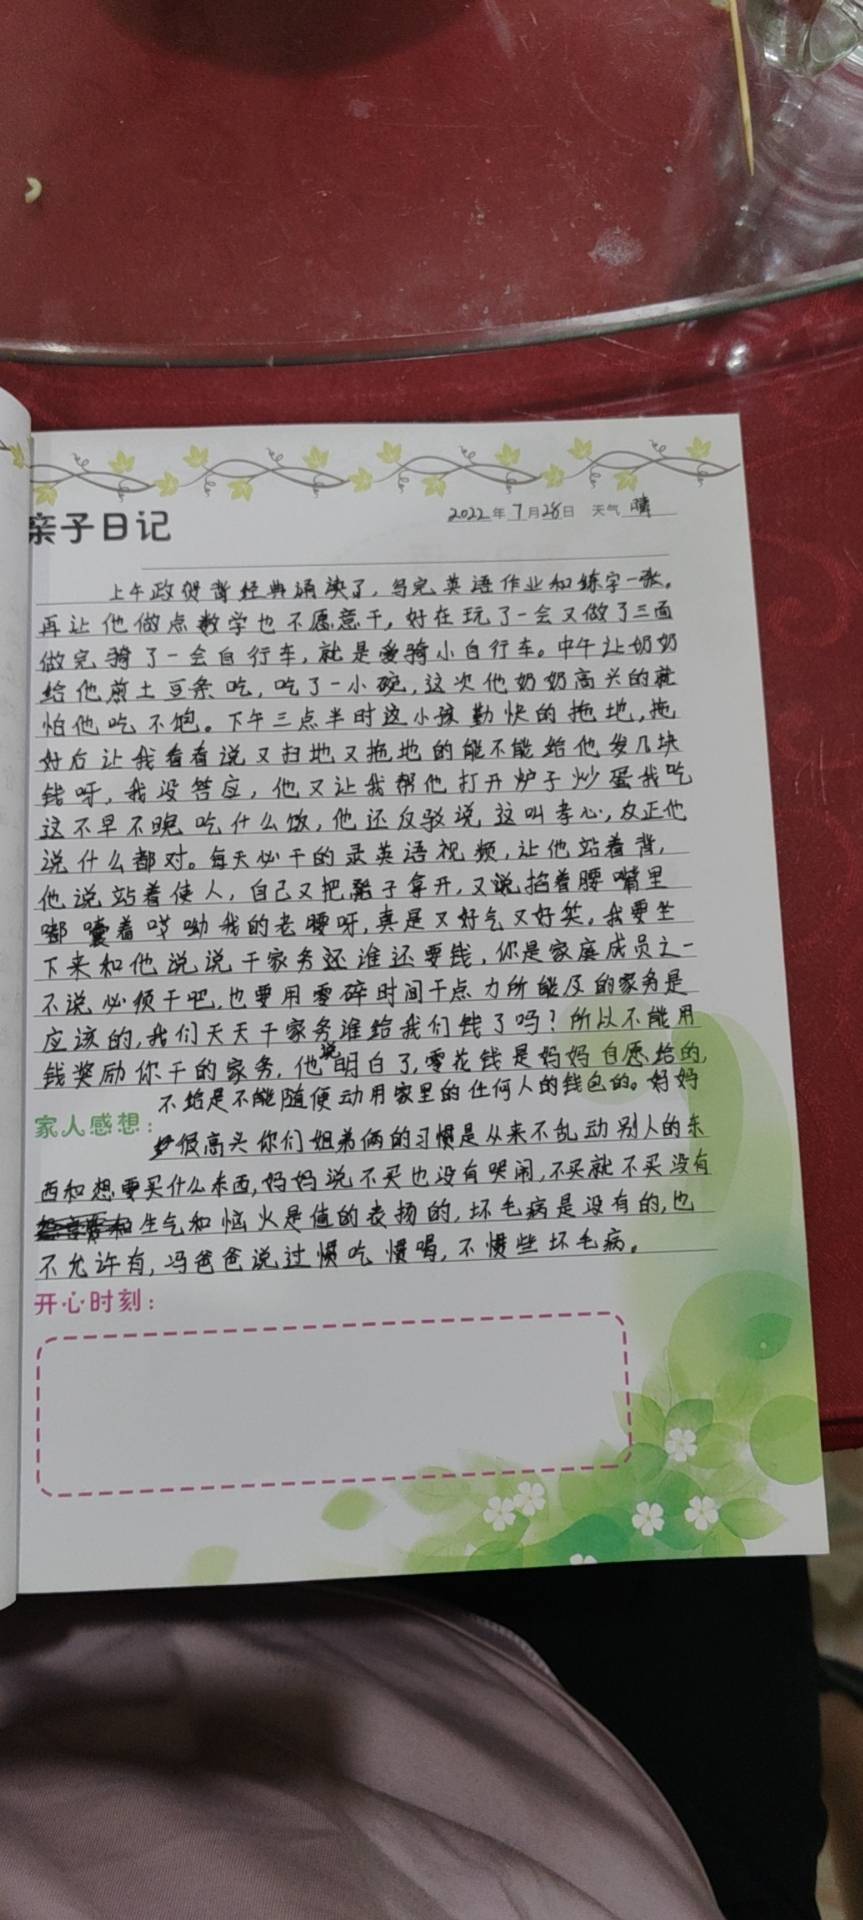 亲子日记
2022年7月28日 天气 晴
上午政贺背经典诵读了，写完英语作业和练字一张。
再让他做点数学也不愿意干，好在玩了一会又做了三面
做完骑了一会自行车，就是爱骑小自行车。中午让奶奶
给他煎土豆条吃，吃了一小碗，这次他奶奶高兴的就
怕他吃不饱。下午三点半时这小孩勤快的拖地，拖
好后让我看看说又扫地又拖地的能不能给他发几块
钱呀，我没答应，他又让我帮他打开炉子炒蛋我吃
这不早不晚吃什么饭，他还反驳说这叫孝心，反正他
说什么都对。每天必干的录英语视频，让他站着背，
他说站着使人，自己又把凳子拿开，又说掐着腰嘴里
嘟囔着哎呦我的老腰呀，真是又好气又好笑。我要坐
下来和他说说干家务还谁还要钱，你是家庭成员之一
不说必须干吧，也要用零碎时间干点力所能及的家务是
应该的，我们天天干家务谁给我们钱了吗？所以不能用
钱奖励你干的家务，他说明白了，零花钱是妈妈自愿给的，
不给是不能随便动用家里的任何人的钱包的。妈妈
家人感想：
很高兴你们姐弟俩的习惯是从来不乱动别人的东
西和想要买什么东西，妈妈说不买也没有哭闹，不买就不买没有
生气和恼火是值的表扬的，坏毛病是没有的，也
不允许有，冯爸爸说过惯吃惯喝，不惯些坏毛病。
开心时刻：